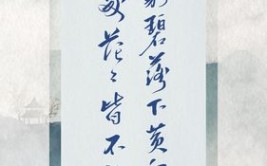 碧落下黄
茫々皆不